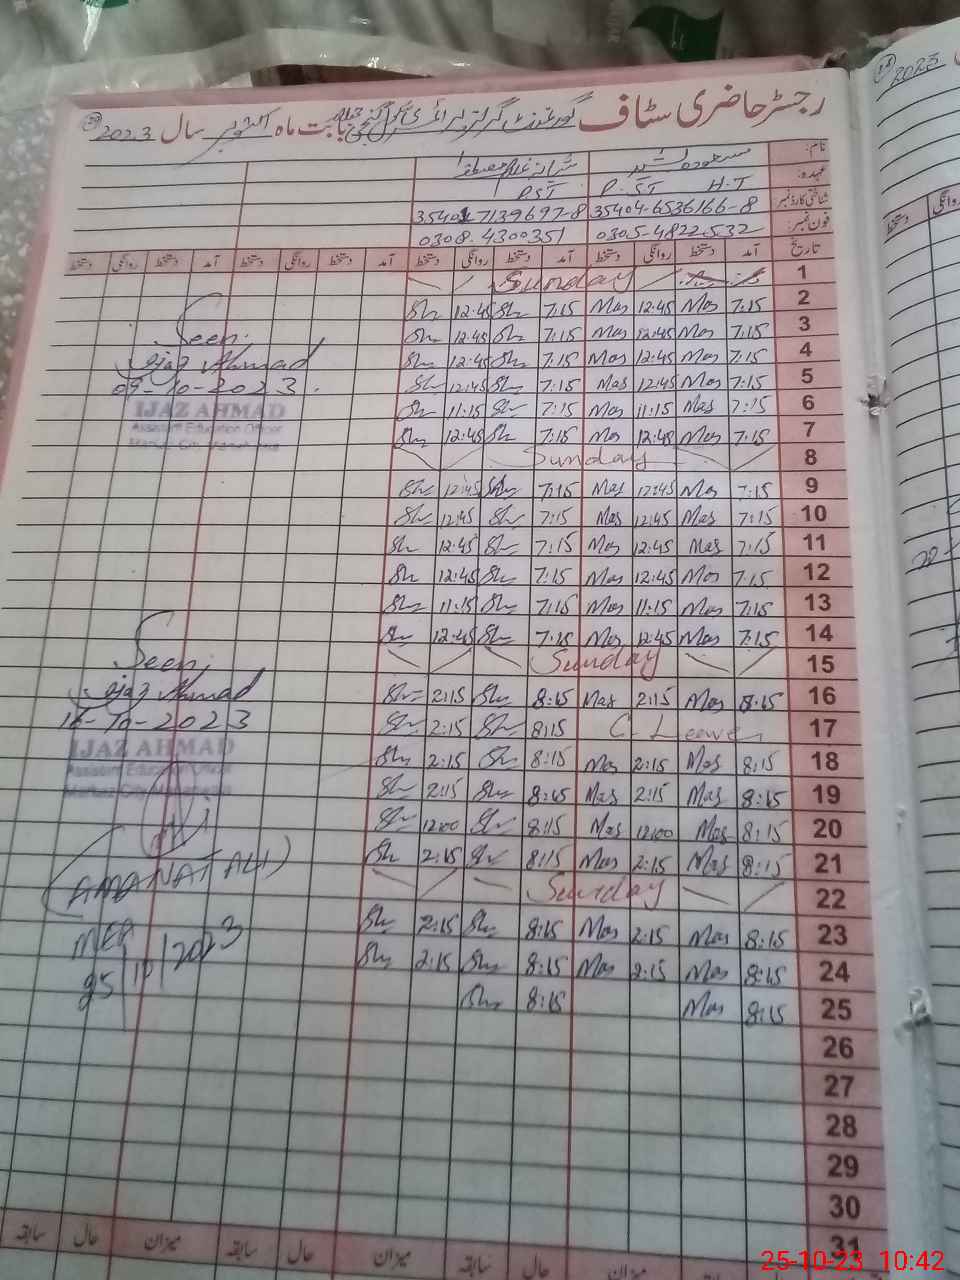 رجسٹر حاضری سٹاف گورنمنٹ گرلز پرائمری سکول بابت ماہ اکتوبر سال 2023
2023
نام:
عہدہ: P.ST H-T PST
شناختی کارڈ نمبر: 35404-6536166-8 35401 7139697-8
فون نمبر: 0305-4822532 0308-4300351
تاریخ آمد دستخط روانگی دستخط آمد دستخط روانگی دستخط آمد دستخط روانگی دستخط آمد دستخط روانگی دستخط
1 Sunday
2 7:15 Mas 12:45 Mas 7:15 Sh 12:45 Sh
3 7:15 Mas 12:45 Mas 7:15 Sh 12:45 Sh
4 7:15 Mas 12:45 Mas 7:15 Sh 12:45 Sh
5 7:15 Mas 12:45 Mas 7:15 Sh 12:45 Sh
6 7:15 Mas 11:15 Mas 7:15 Sh 11:15 Sh
7 7:15 Mas 12:45 Mas 7:15 Sh 12:45 Sh
8 Sunday
9 7:15 Mas 12:45 Mas 7:15 Sh 12:45 Sh
10 7:15 Mas 12:45 Mas 7:15 Sh 12:45 Sh
11 7:15 Mas 12:45 Mas 7:15 Sh 12:45 Sh
12 7:15 Mas 12:45 Mas 7:15 Sh 12:45 Sh
13 7:15 Mas 11:15 Mas 7:15 Sh 11:15 Sh
14 7:15 Mas 12:45 Mas 7:15 Sh 12:45 Sh
15 Sunday
16 8:15 Mas 2:15 Mas 8:15 Sh 2:15 Sh
17 C. Leave 8:15 Sh 2:15 Sh
18 8:15 Mas 2:15 Mas 8:15 Sh 2:15 Sh
19 8:15 Mas 2:15 Mas 8:15 Sh 2:15 Sh
20 8:15 Mas 12:00 Mas 8:15 Sh 12:00 Sh
21 8:15 Mas 2:15 Mas 8:15 Sh 2:15 Sh
22 Sunday
23 8:15 Mas 2:15 Mas 8:15 Sh 2:15 Sh
24 8:15 Mas 2:15 Mas 8:15 Sh 2:15 Sh
25 8:15 Mas 8:15 Sh
26
27
28
29
30
31
Seen
Ijaz Ahmad
09-10-2023.
IJAZ AHMAD
Assistant Education Officer
Markaz City
Seen
Ijaz Ahmad
16-10-2023
IJAZ AHMAD
Assistant Education Officer
Markaz City
(AMANAT ALI)
MEA
25/10/2023
حال سابقہ میزان حال سابقہ میزان حال سابقہ میزان حال سابقہ
25-10-23 10:42